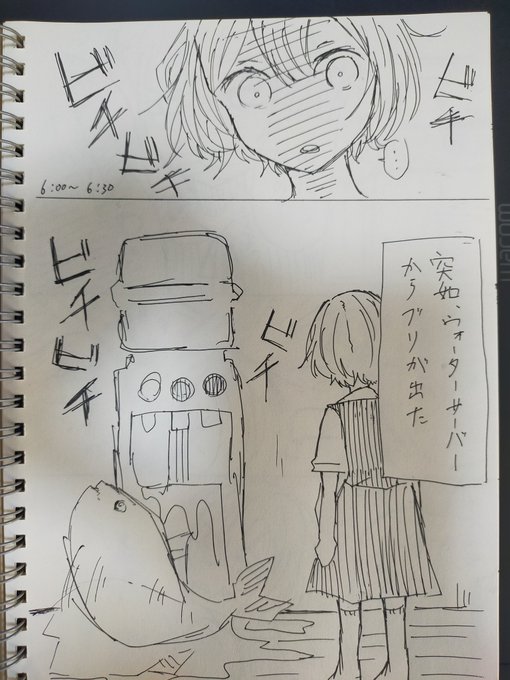 ビチ
ビチ
ビチ
…
6:00〜6:30
突如、ウォーターサーバー
からブリが出た
ビチ
ビチ
ビチ
wacom